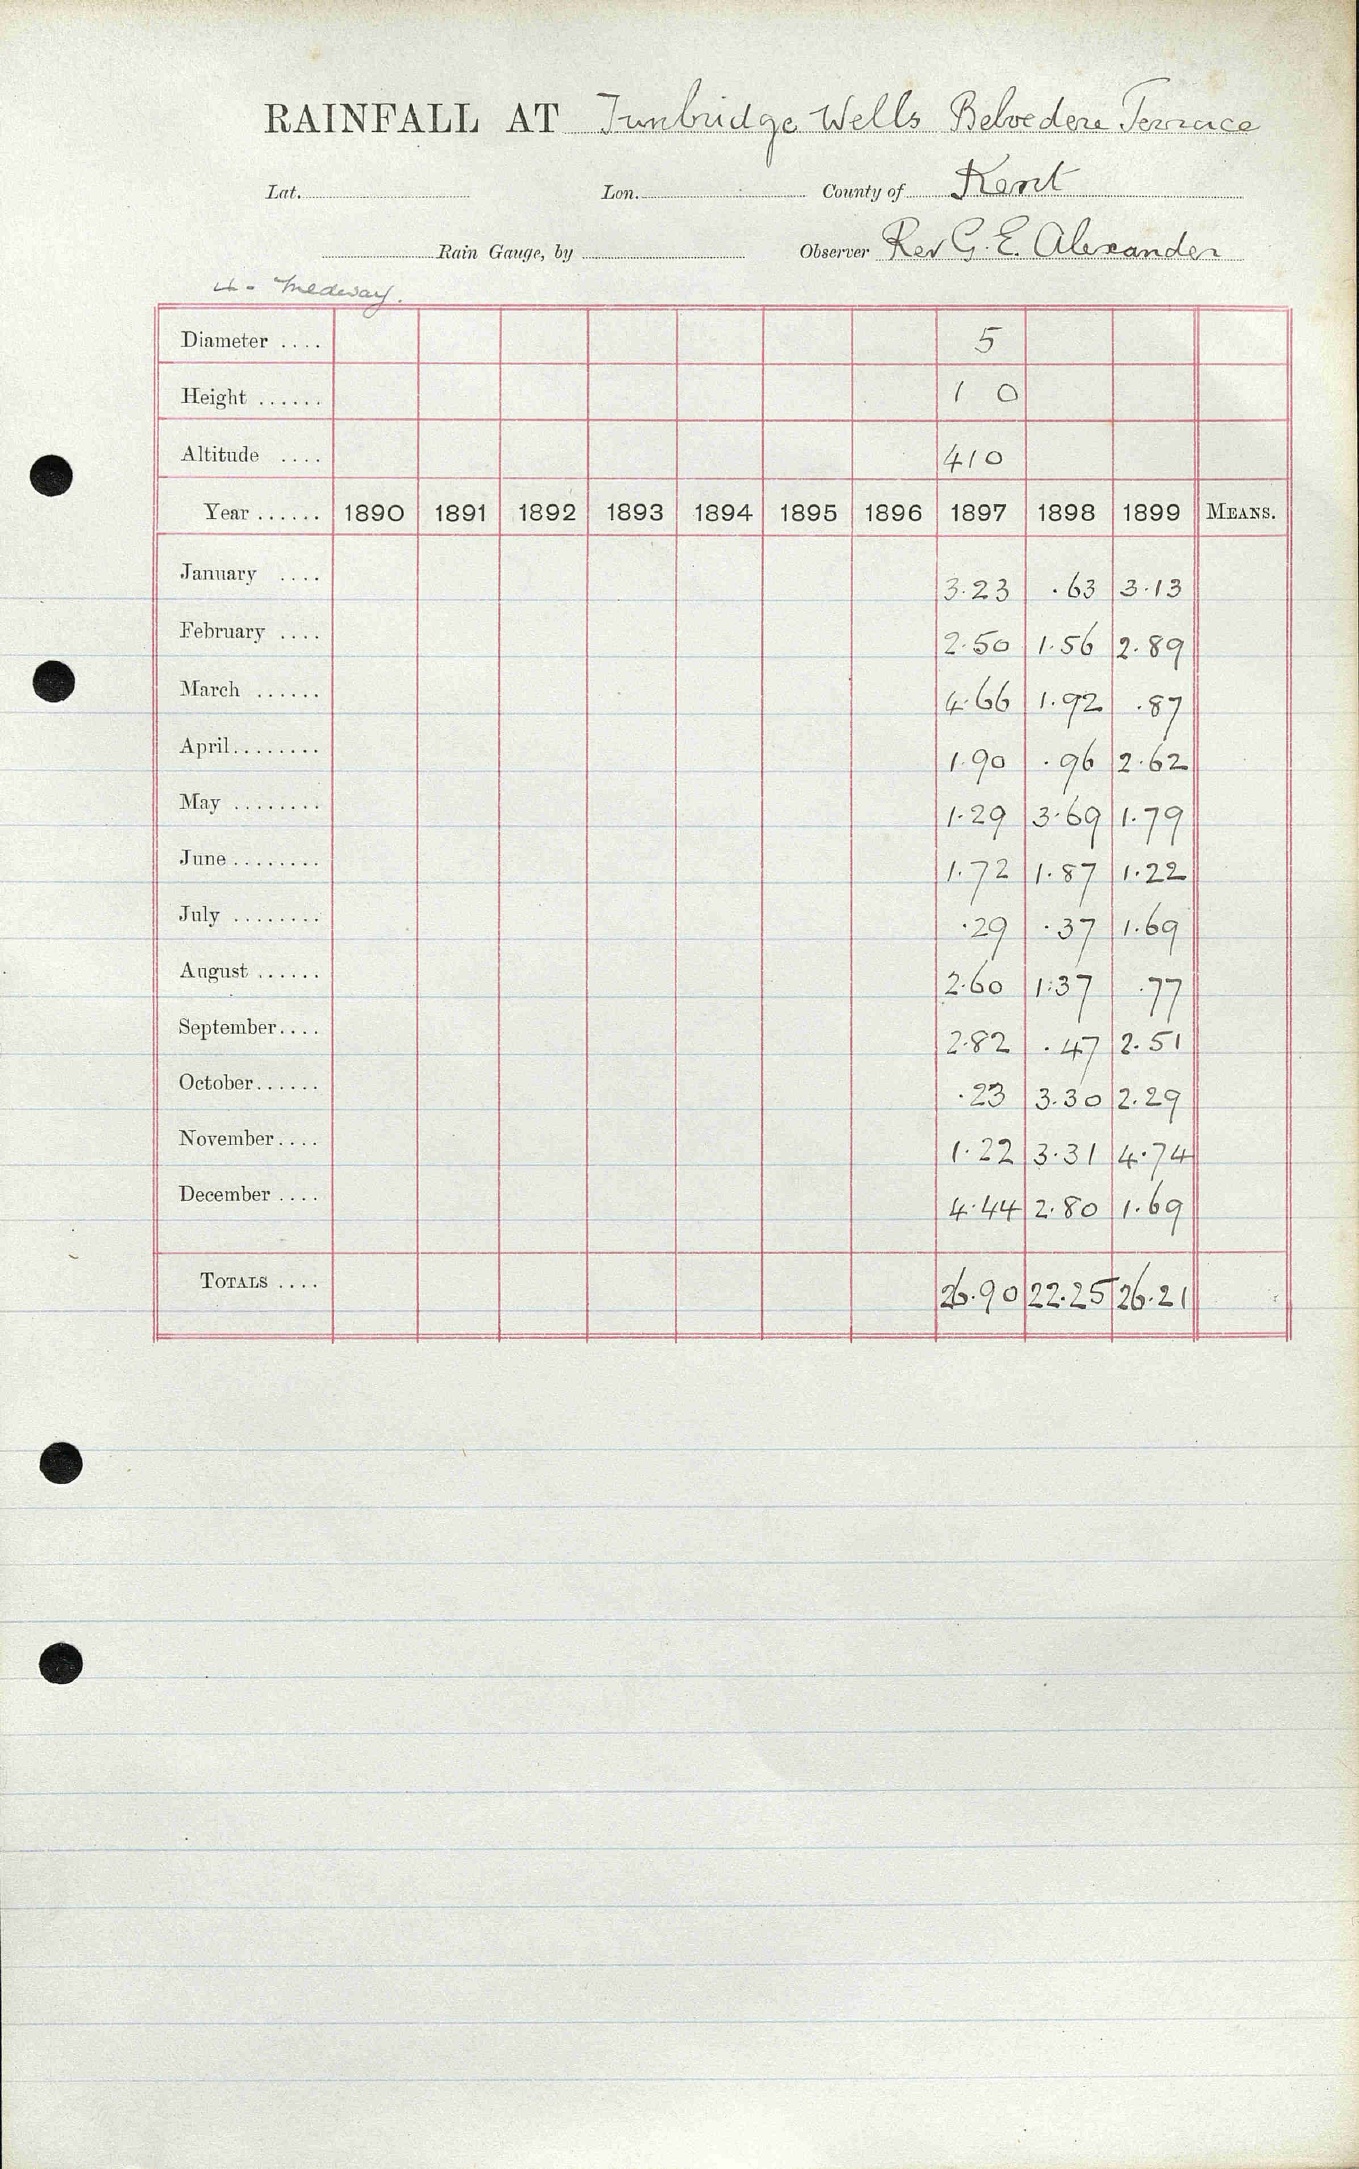 RAINFALL AT Tunbridge Wells Belvedere Terrace
Lat. Lon. County of Kent
Rain Gauge, by Observer Rev G. E. Alexander
4 - Medway.
Diameter .... 5
Height ...... 1 0
Altitude .... 410
Year ...... 1890 1891 1892 1893 1894 1895 1896 1897 1898 1899 MEANS.
January .... 3.23 .63 3.13
February .... 2.50 1.56 2.89
March ...... 4.66 1.92 .87
April........ 1.90 .96 2.62
May ........ 1.29 3.69 1.79
June ........ 1.72 1.87 1.22
July ........ .29 .37 1.69
August ...... 2.60 1.37 .77
September.... 2.82 .47 2.51
October...... .23 3.30 2.29
November.... 1.22 3.31 4.74
December .... 4.44 2.80 1.69
TOTALS .... 26.90 22.25 26.21